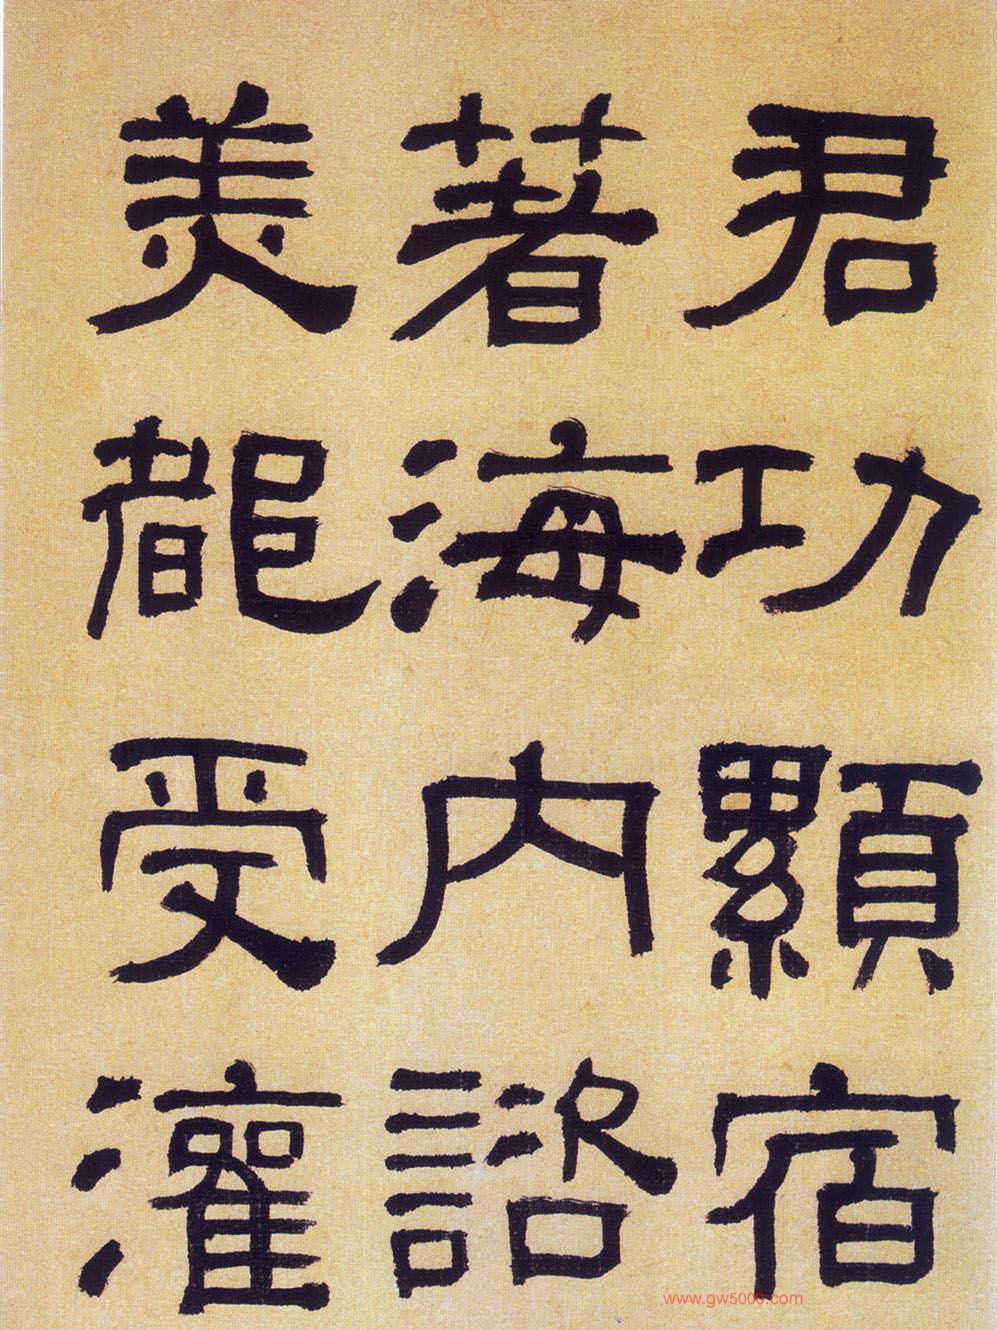 君功顯宿
著海內諮
美都受灌
www.gw5000.com